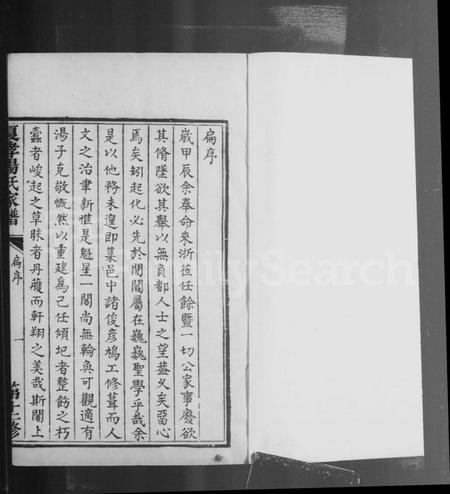 扁序
歲甲辰余奉命來浙茲任餘暨一切公家事廢欲
其脩墜欲其舉以無負都人士之望葢久矣畱心
焉矣矧起化必先於閭閻屬在巍巍聖學乎哉余
是以他務未遑即集邑中諸俊彥鳩工修葺而人
文之治聿新惟是魁星一閣尚無輪奐可觀適有
湯子克敬慨然以重建為己任傾圯者整飭之朽
蠹者峻起之草昧者丹雘而軒翔之美哉斯閣上
夏孝湯氏家譜
扁序
一
第十二修
FamilySearch